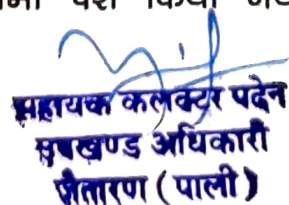 पेश किया
सहायक कलक्टर पदेन
उपखण्ड अधिकारी
जैतारण (पाली)